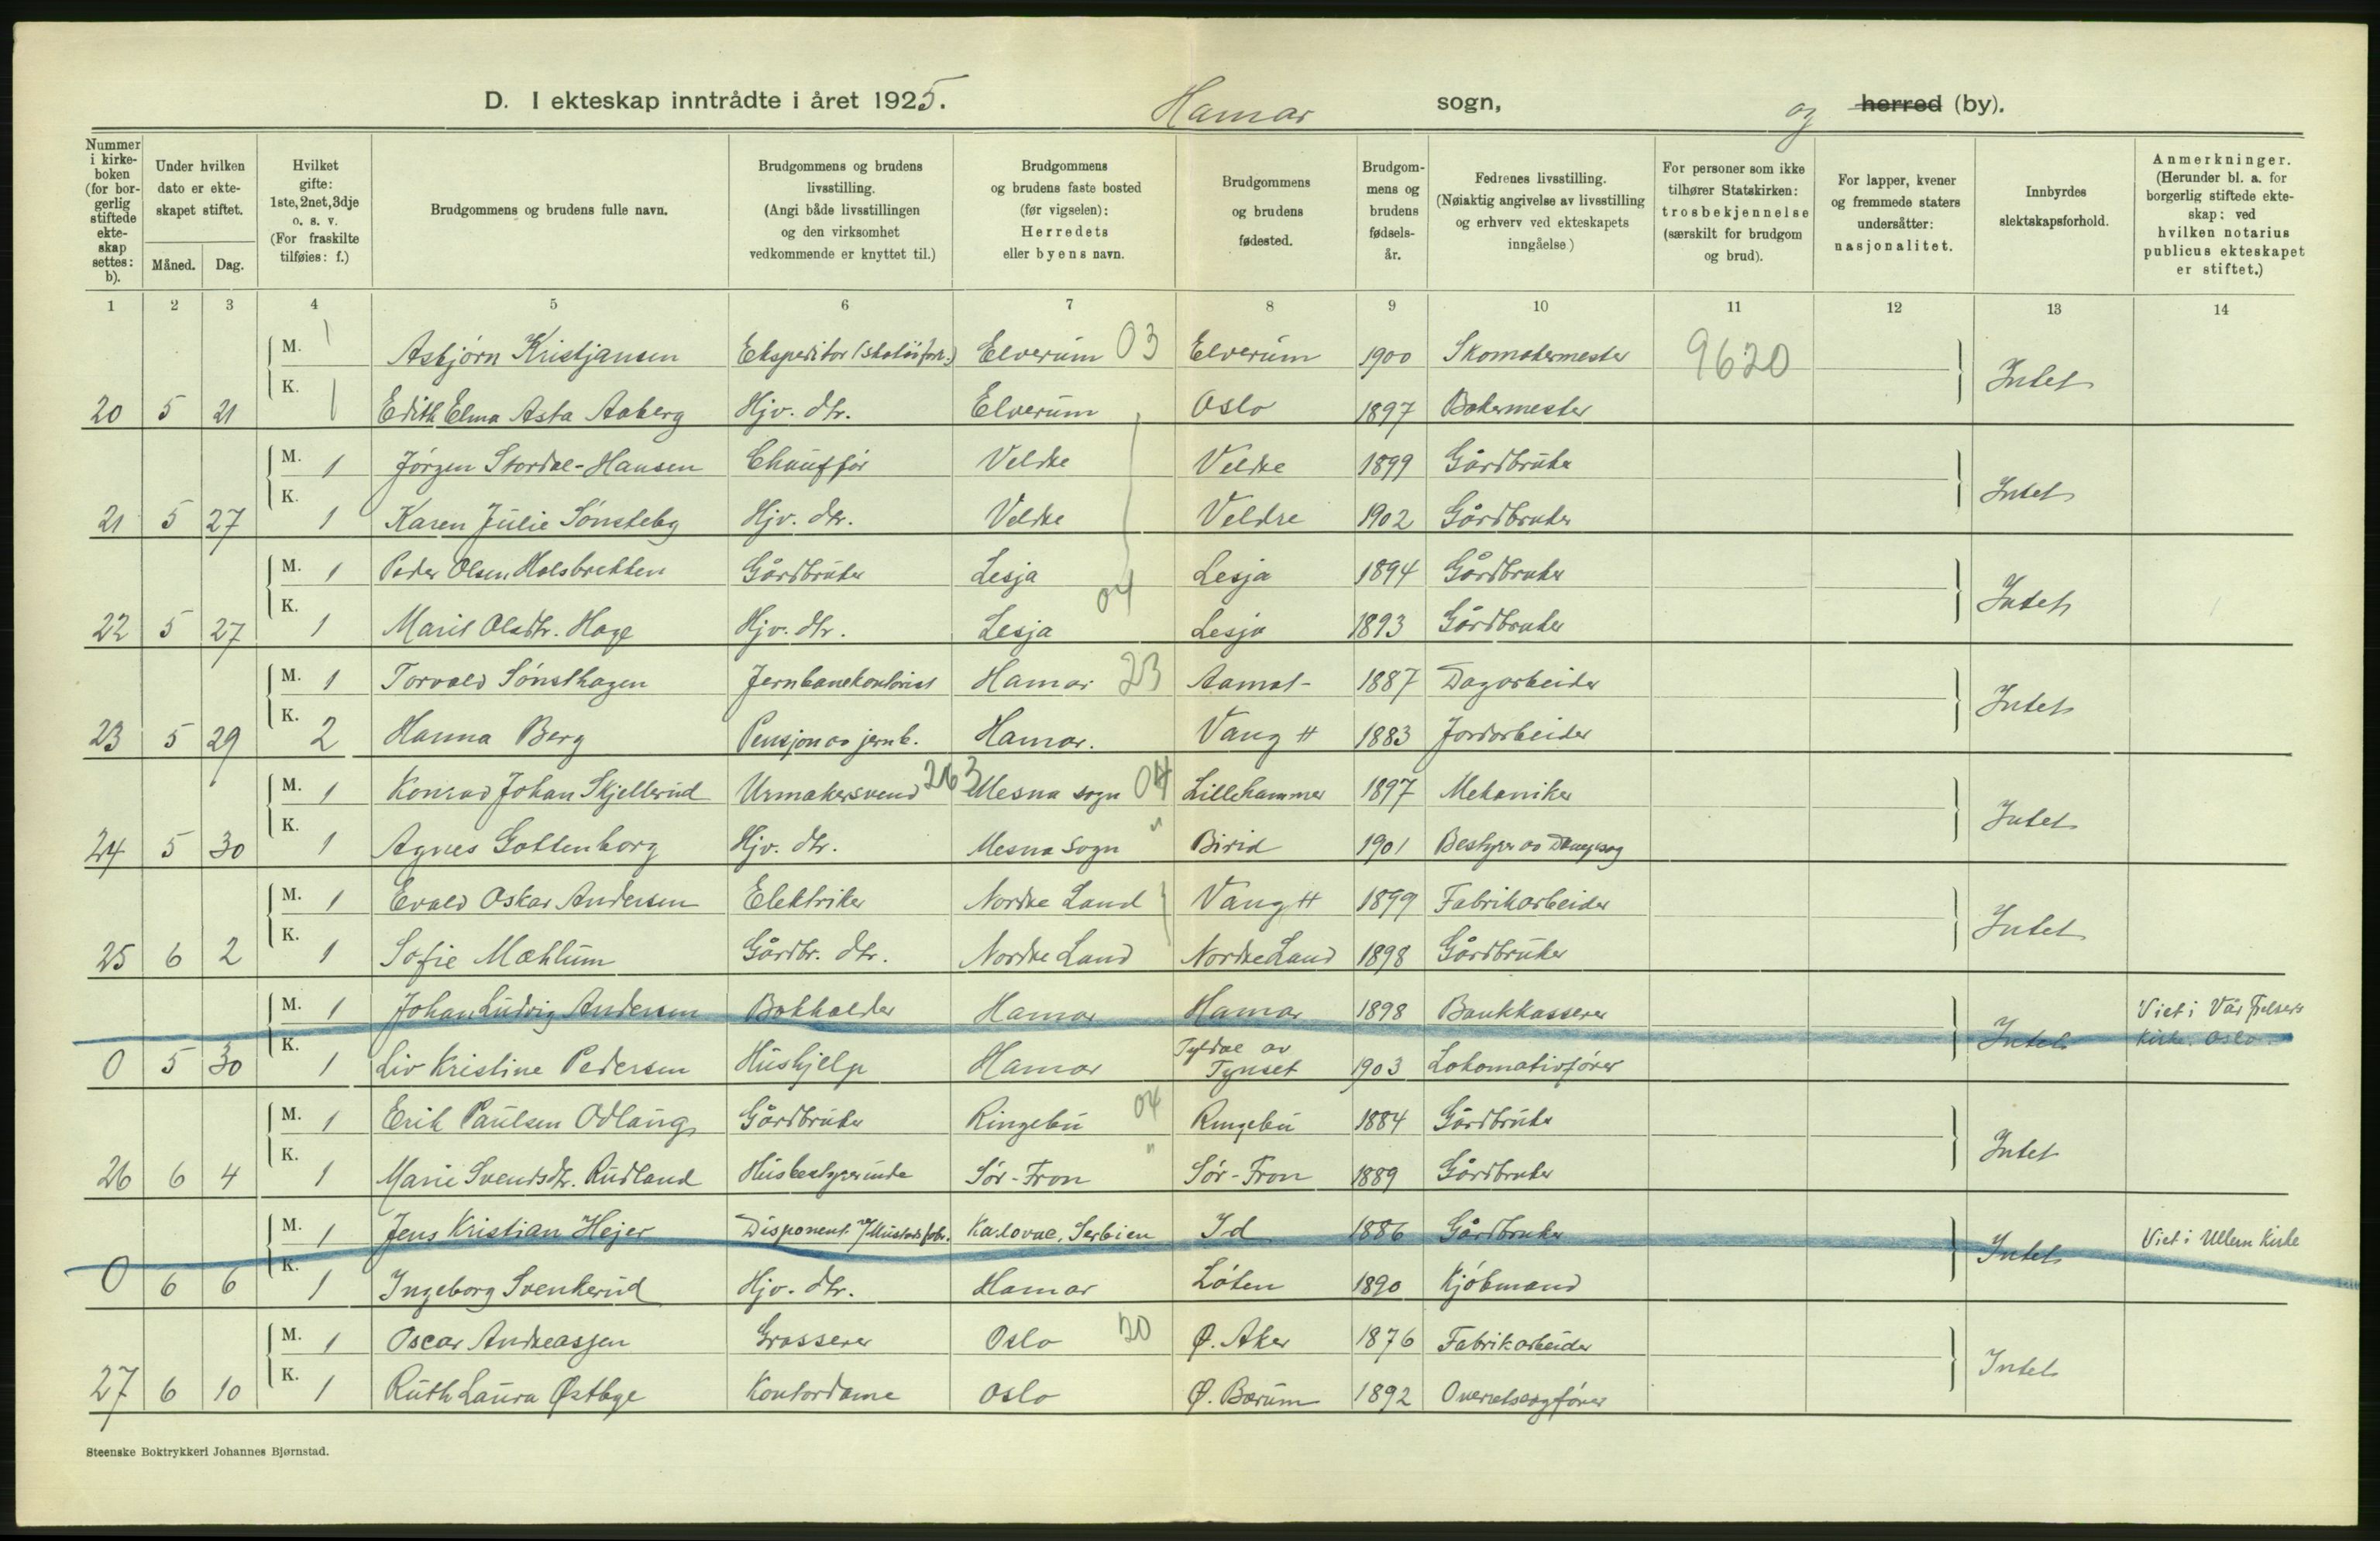 D. I ekteskap inntrådte i året 1925. Hamar sogn, og herred (by).
Nummer i kirkeboken (for borgerlig stiftede ekteskap settes: b). Under hvilken dato er ekteskapet stiftet. Måned. Dag. Hvilket gifte: 1ste, 2net, 3dje o. s. v. (For fraskilte tilføies: f.) Brudgommens og brudens fulle navn. Brudgommens og brudens livsstilling. (Angi både livsstillingen og den virksomhet vedkommende er knyttet til.) Brudgommens og brudens faste bosted (før vigselen): Herredets eller byens navn. Brudgommens og brudens fødested. Brudgommens og brudens fødselsår. Fedrenes livsstilling. (Nøiaktig angivelse av livsstilling og erhverv ved ekteskapets inngåelse) For personer som ikke tilhører Statskirken: trosbekjennelse (særskilt for brudgom og brud). For lapper, kvener og fremmede staters undersåtter: nasjonalitet. Innbyrdes slektskapsforhold. Anmerkninger. (Herunder bl. a. for borgerlig stiftede ekteskap: ved hvilken notarius publicus ekteskapet er stiftet.)
1 2 3 4 5 6 7 8 9 10 11 12 13 14
M. 1 Asbjørn Kristjansen Ekspeditor Elverum 03 Elverum 1900 Skomakermester 9620
20 5 21 K. 1 Edith Elma Asta Aaberg Hjv. dtr. Elverum Oslo 1897 Bakermester Intet
M. 1 Jørgen Stordal-Hansen Chauffør Veldre Veldre 1899 Gårdbruker
21 5 27 K. 1 Karen Julie Sønsteby Hjv. dtr. Veldre Veldre 1902 Gårdbruker Intet
M. 1 Peder Olsen Holsbrekken Gårdbruker Lesja Lesja 1894 Gårdbruker
22 5 27 K. 1 Marit Olsdtr. Hage Hjv. dtr. Lesja 04 Lesja 1893 Gårdbruker Intet
M. 1 Torvald Sønsthagen Jernbanekontorist Hamar 23 Aamot 1887 Dagarbeider
23 5 29 K. 2 Hanna Berg Pensjon av jernb. Hamar. Vang H 1883 Jordarbeider Intet
M. 1 Konrad Johan Skjellerud Urmakersvend 263 Mesna sogn 04 Lillehammer 1897 Mekaniker
24 5 30 K. 1 Agnes Gottenborg Hjv. dtr. Mesna Sogn " Birid 1901 Bestyrer av Dampsag Intet
M. 1 Evald Oskar Andersen Elektriker Nordre Land Vang H 1899 Fabrikarbeider
25 6 2 K. 1 Sofie Mæhlum Gårdbr. dtr. Nordre Land Nordre Land 1898 Gårdbruker Intet
M. 1 Johan Ludvig Andersen Bokholder Hamar Hamar 1898 Bankkasserer Viet i Vår Frelsers
0 5 30 K. 1 Liv Kristine Pedersen Hushjelp Hamar Tyldal av Tynset 1903 Lokomotivfører Intet Kirke, Oslo.
M. 1 Erik Paulsen Odlaug Gårdbruker Ringebu 04 Ringebu 1884 Gårdbruker
26 6 4 K. 1 Marie Svendsdtr. Rudland Husbestyrerinde Sør-Fron " Sør-Fron 1889 Gårdbruker Intet
M. 1 Jens Kristian Hejer Disponent v/Mustads fabr. Karlovac, Serbien Id 1886 Gårdbruker Viet i Ullern Kirke
0 6 6 K. 1 Ingeborg Svenkerud Hjv. dtr. Hamar Løten 1890 Kjøbmand Intet
M. 1 Oscar Andreassen Grosserer Oslo 20 Ø. Aker 1876 Fabrikarbeider
27 6 10 K. 1 Ruth Laura Østbye Kontordame Oslo Ø. Bærum 1892 Overretssagfører Intet
Steenske Boktrykkeri Johannes Bjørnstad.